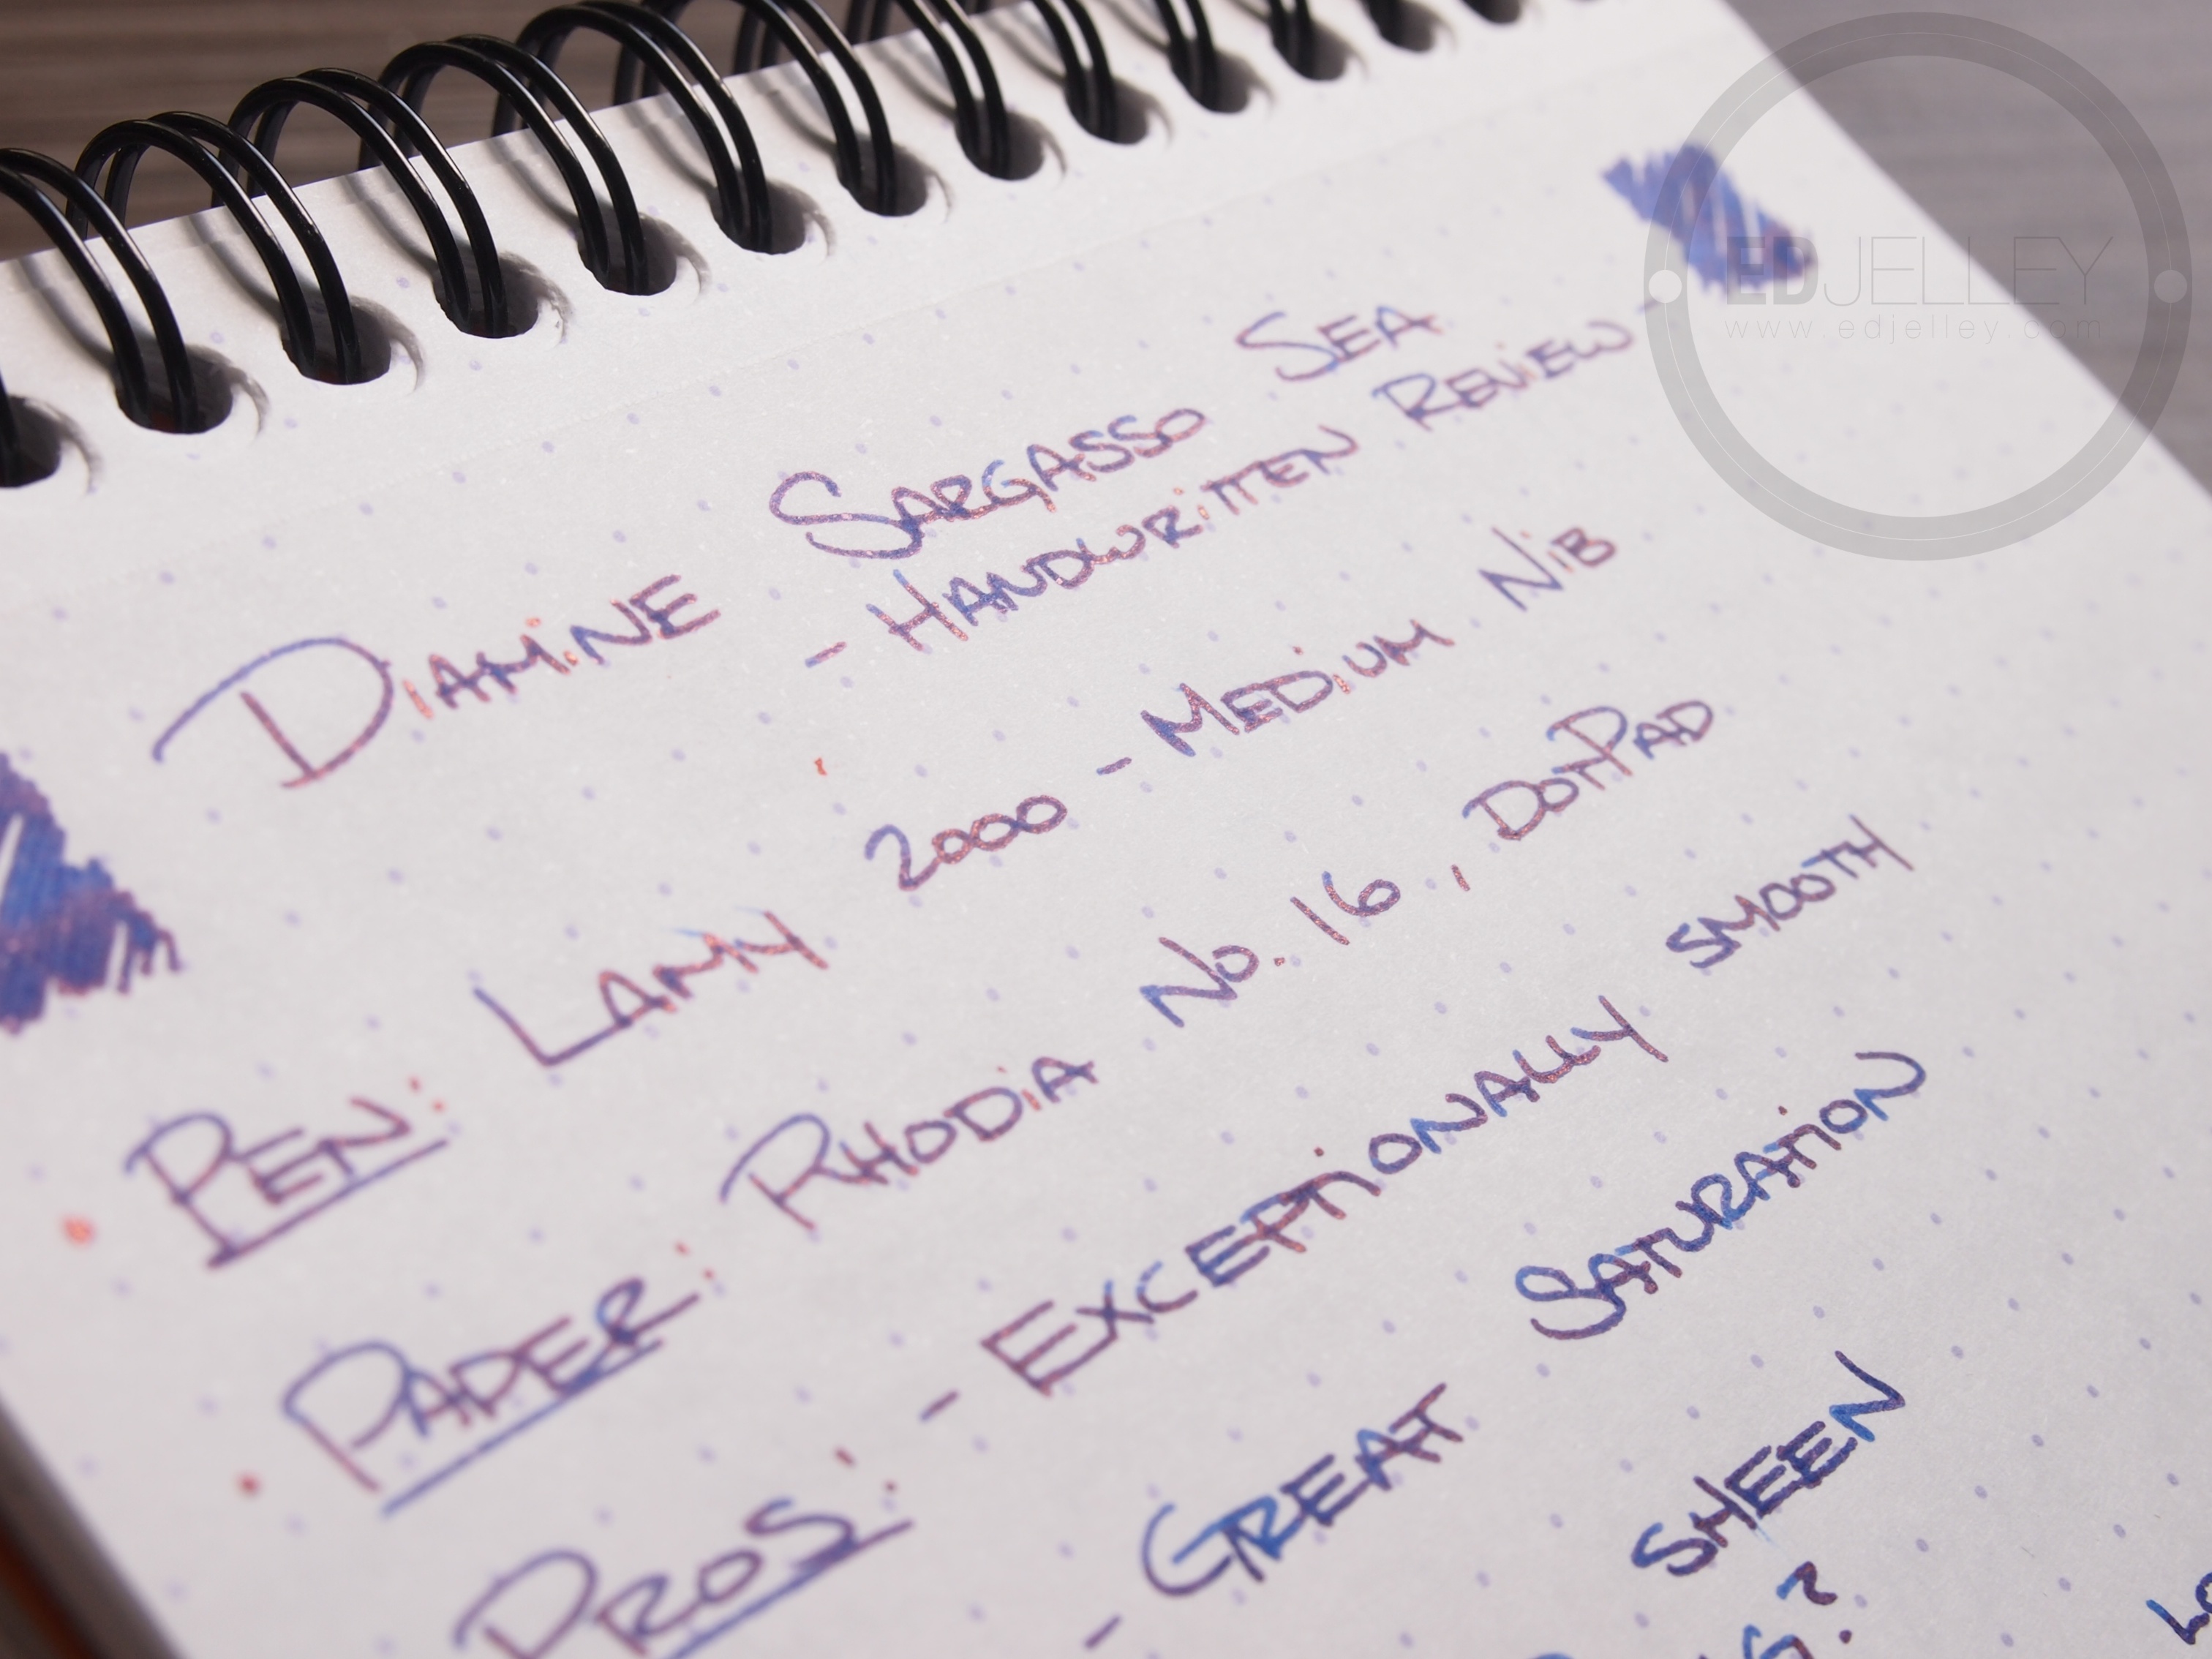 DIAMINE SARGASSO SEA
- HANDWRITTEN REVIEW -
PEN: LAMY 2000 - MEDIUM NIB
PAPER: RHODIA No. 16, DOTPAD
PROS: - EXCEPTIONALLY SMOOTH
- GREAT SATURATION
SHEEN
EDJELLEY
www.edjelley.com